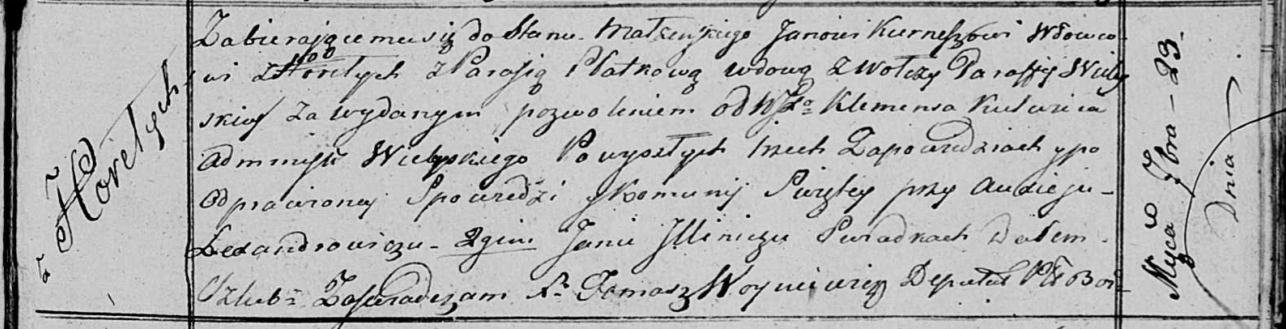 z Horełych
Zabierającemu się do Stanu Małżeńskiego Janowi Kurneszowi Wdowco-
wi z Horełych z Parasią Płatkową wdową z Wołczy Paraffij
skiey za wydanym pozwoleniem od Klemensa
Admnystr Powyszłych trzech Zapowiedziach y po
Odprawioney Spowiedzi y Komunij Swiętey przy Andzieju
Lexandrowiczu 2gim Janie Illiniczu Swiadkach Dałem
Szlub Zaswiadczam Xr Tomasz Woyniewicz Deputat
Myca 7bra 23
Dnia